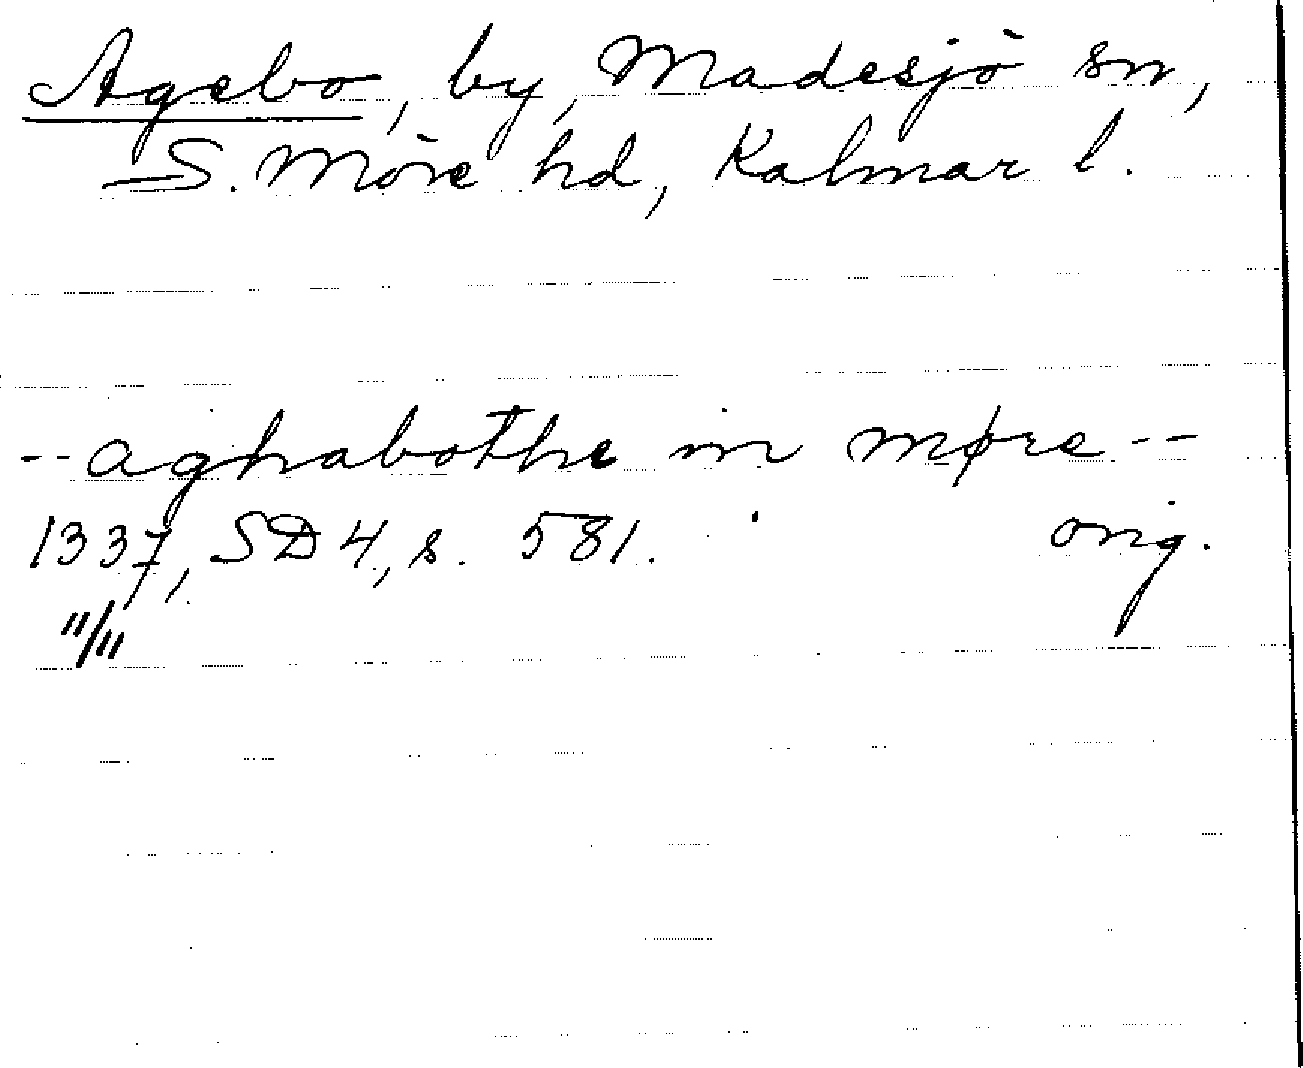 Agebo, by, Madesjö sn,
S. Möre hd, Kalmar l.
-- aghabothe in møre --
1337, SD 4, s. 581. orig.
"/"